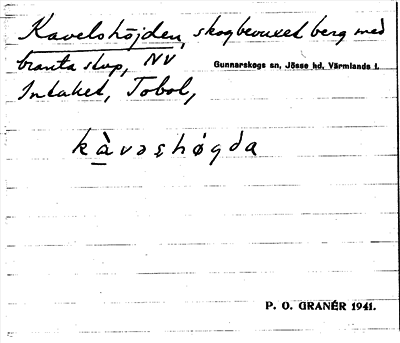 Kavelshöjden, skogbevuxet berg med
branta stup, NV
Gunnarskogs sn, Jösse hd, Värmlands l.
Intaket, Tobol,
kàvəshøgda
P. O. GRANÉR 1941.